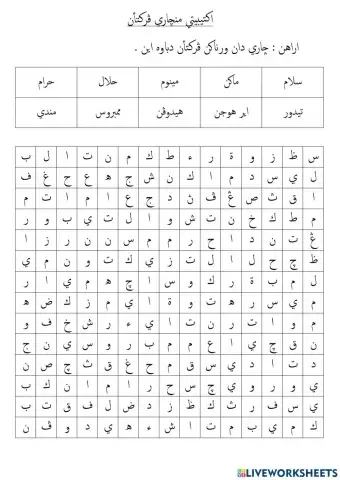 اکتيۏيتي منچاري ڤرکتأن
اراهن : چاري دان ورناکن ڤرکتأن دباوه اين .
سلام ماکن مينوم حلال حرام
تيدور اير هوجن هيدوڤن ممبروس مندي
س ظ ز و ة ر ء ط ك م ن ت ا ل ب
ل ي س د م ا ك ن ش ج ه ع ح غ ف
ا ق ث ص ڠ ڤ ڽ د ج ع ا م ا ت م
م ط ك خ ن ت ش و ا ل ت ي ب و ر
ڠ ت ن د ا ح ر م م س ن ن ر ز ا
ظ چ ح ل ا ل ت ز ي ك ت و ن م ي
ل م ب ة ر ك و س ا چ ه م ي ا ر
م ي س ر ه ت و ة ا ي م ز ك ض ه
م و ا ت ر ن ت ا ي ء ر ش خ ف و
ن ق چ ي ا ع م م ب ر و س ي ن ج
د ت ا د ي س ق م ح غ ق ث چ ص ن
ي و ر و ي چ س ح ر ا م ا ن ك ب
ي س ف ر ث ك ظ ز د ض ل ف ق ت ب
ك م ي ب م ت ا ش ء ه ي د و ڤ ن
LIVEWORKSHEETS